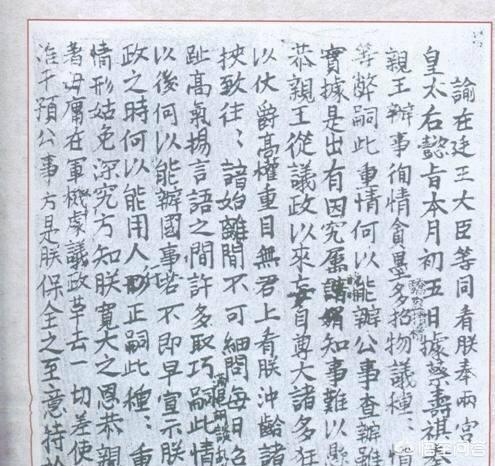 諭在廷王大臣等同看朕奉兩宫
皇太后懿旨本月初五日據蔡壽祺
親王辦事徇情貪墨多招物議種:情
等弊嗣此重情何以能辦公事查辦雖
實據是出有因究屬知事難以懸
恭親王從議政以來妄自尊大諸多狂
以仗爵高權重目無君上看朕冲齡諸
挾致往:諳始離間不可細問每日召
趾高氣揚言語之間許多取巧滿口胡談嗣此情
以後何以能辦國事若不即早宣示朕
政之時何以能用人行正嗣此種:重
情形姑免深究方知朕寬大之恩恭親
著毋庸在軍機處議政革去一切差使
准干預公事方是朕保全之至意特
悟空问答